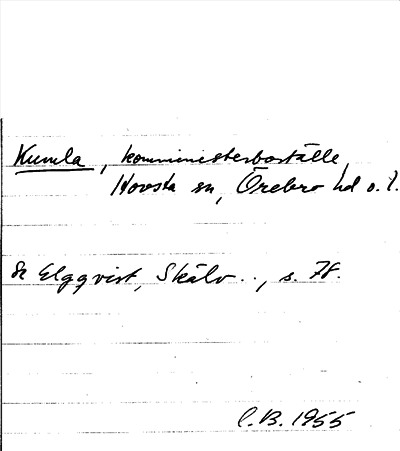 Kumla, komministerboställe,
Hovsta sn, Örebro hd o. l.
Se Elgqvist, Skälv.., s. 78.
C.B. 1955